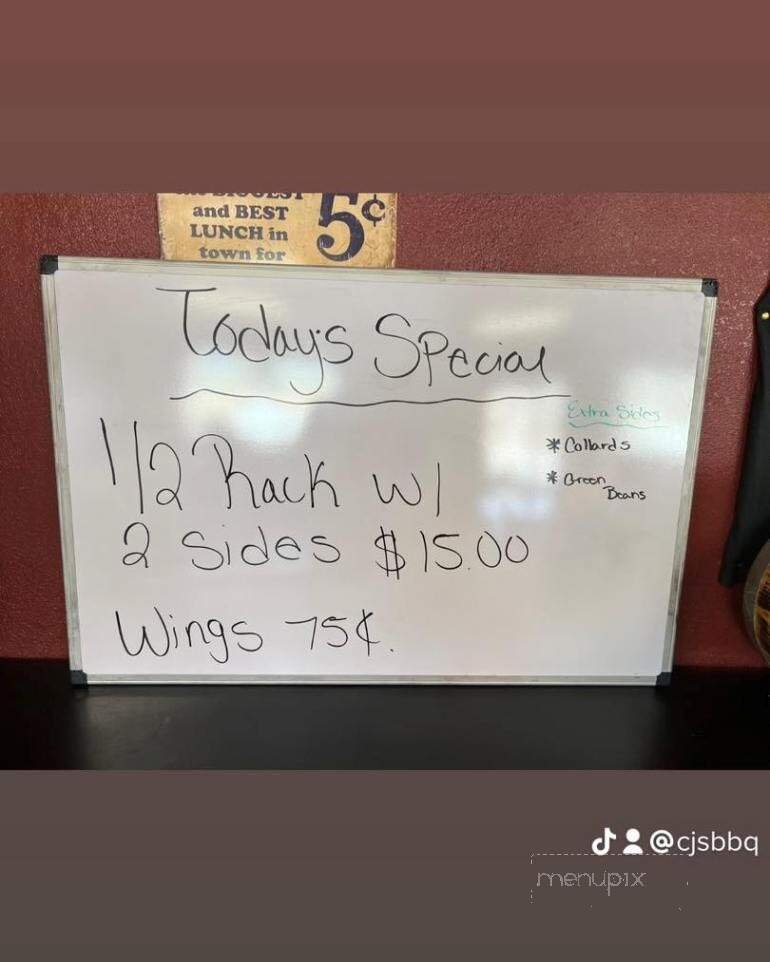 and BEST
LUNCH in
town for
5¢
Today's Special
1/2 Rack w/
2 Sides $15.00
Wings 75¢.
Extra Sides
* Collards
* Green
Beans
@cjsbbq
menupix